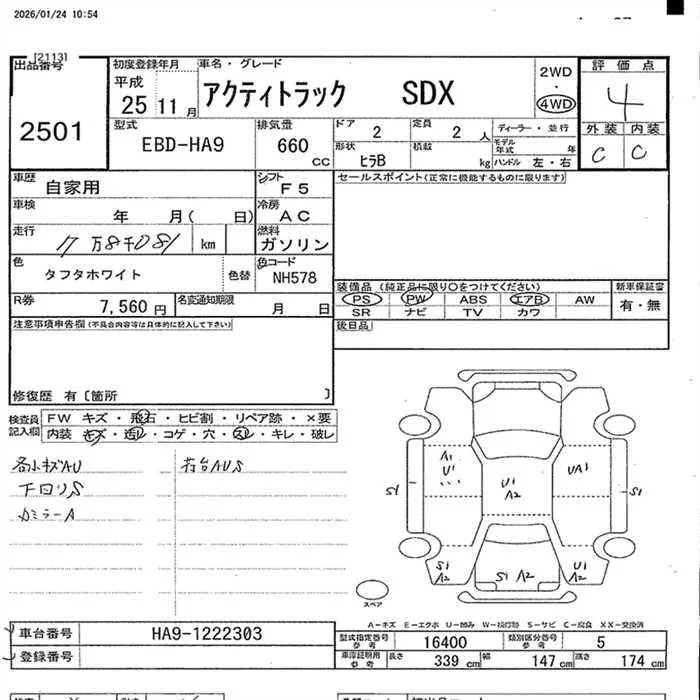 2026/01/24 10:54
[2113]
出品番号
2501
初度登録年月
平成
25 11 月
車名・グレード
アクティトラック SDX
2WD
・
4WD
評価点
4
外装 内装
C C
型式
EBD-HA9
排気量
660
CC
ドア
2
定員
2 人
ディーラー・並行
モデル
年式 年
形状
ヒラB
積載
kg
ハンドル 左・右
車歴
自家用
シフト
F5
セールスポイント(正常に機能するものに限ります)
車検
年 月( 日)
冷房
AC
走行
km
燃料
ガソリン
色
タフタホワイト
色替
色コード
NH578
装備品 (純正品に限り○をつけてください)
新車保証書
PS PW ABS エアB AW
有・無
SR ナビ TV カワ
R券
7,560 円
名変通知期限
月 日
後日品
注意事項申告欄(不具合内容等は具体的に記入して下さい)
修復歴 有〔箇所 〕
検査員
記入欄
FW キズ・飛石・ヒビ割・リペア跡・×要
内装 キズ・汚レ・コゲ・穴・スレ・キレ・破レ
各小キズAU
荷台AUS
下回りS
カミラーA
A1
U1
U1
A2
UA1
S1
S1
S1
A2
S1 A2
U1
A2
スペア
A-キズ E-エクボ U-凹み W-補修跡 S-サビ C-腐食 XX-交換済
車台番号
HA9-1222303
型式指定番号
参考
16400
類別区分番号
参考
5
登録番号
車庫証明用
参考
長さ
339 cm
幅
147 cm
高さ
174 cm